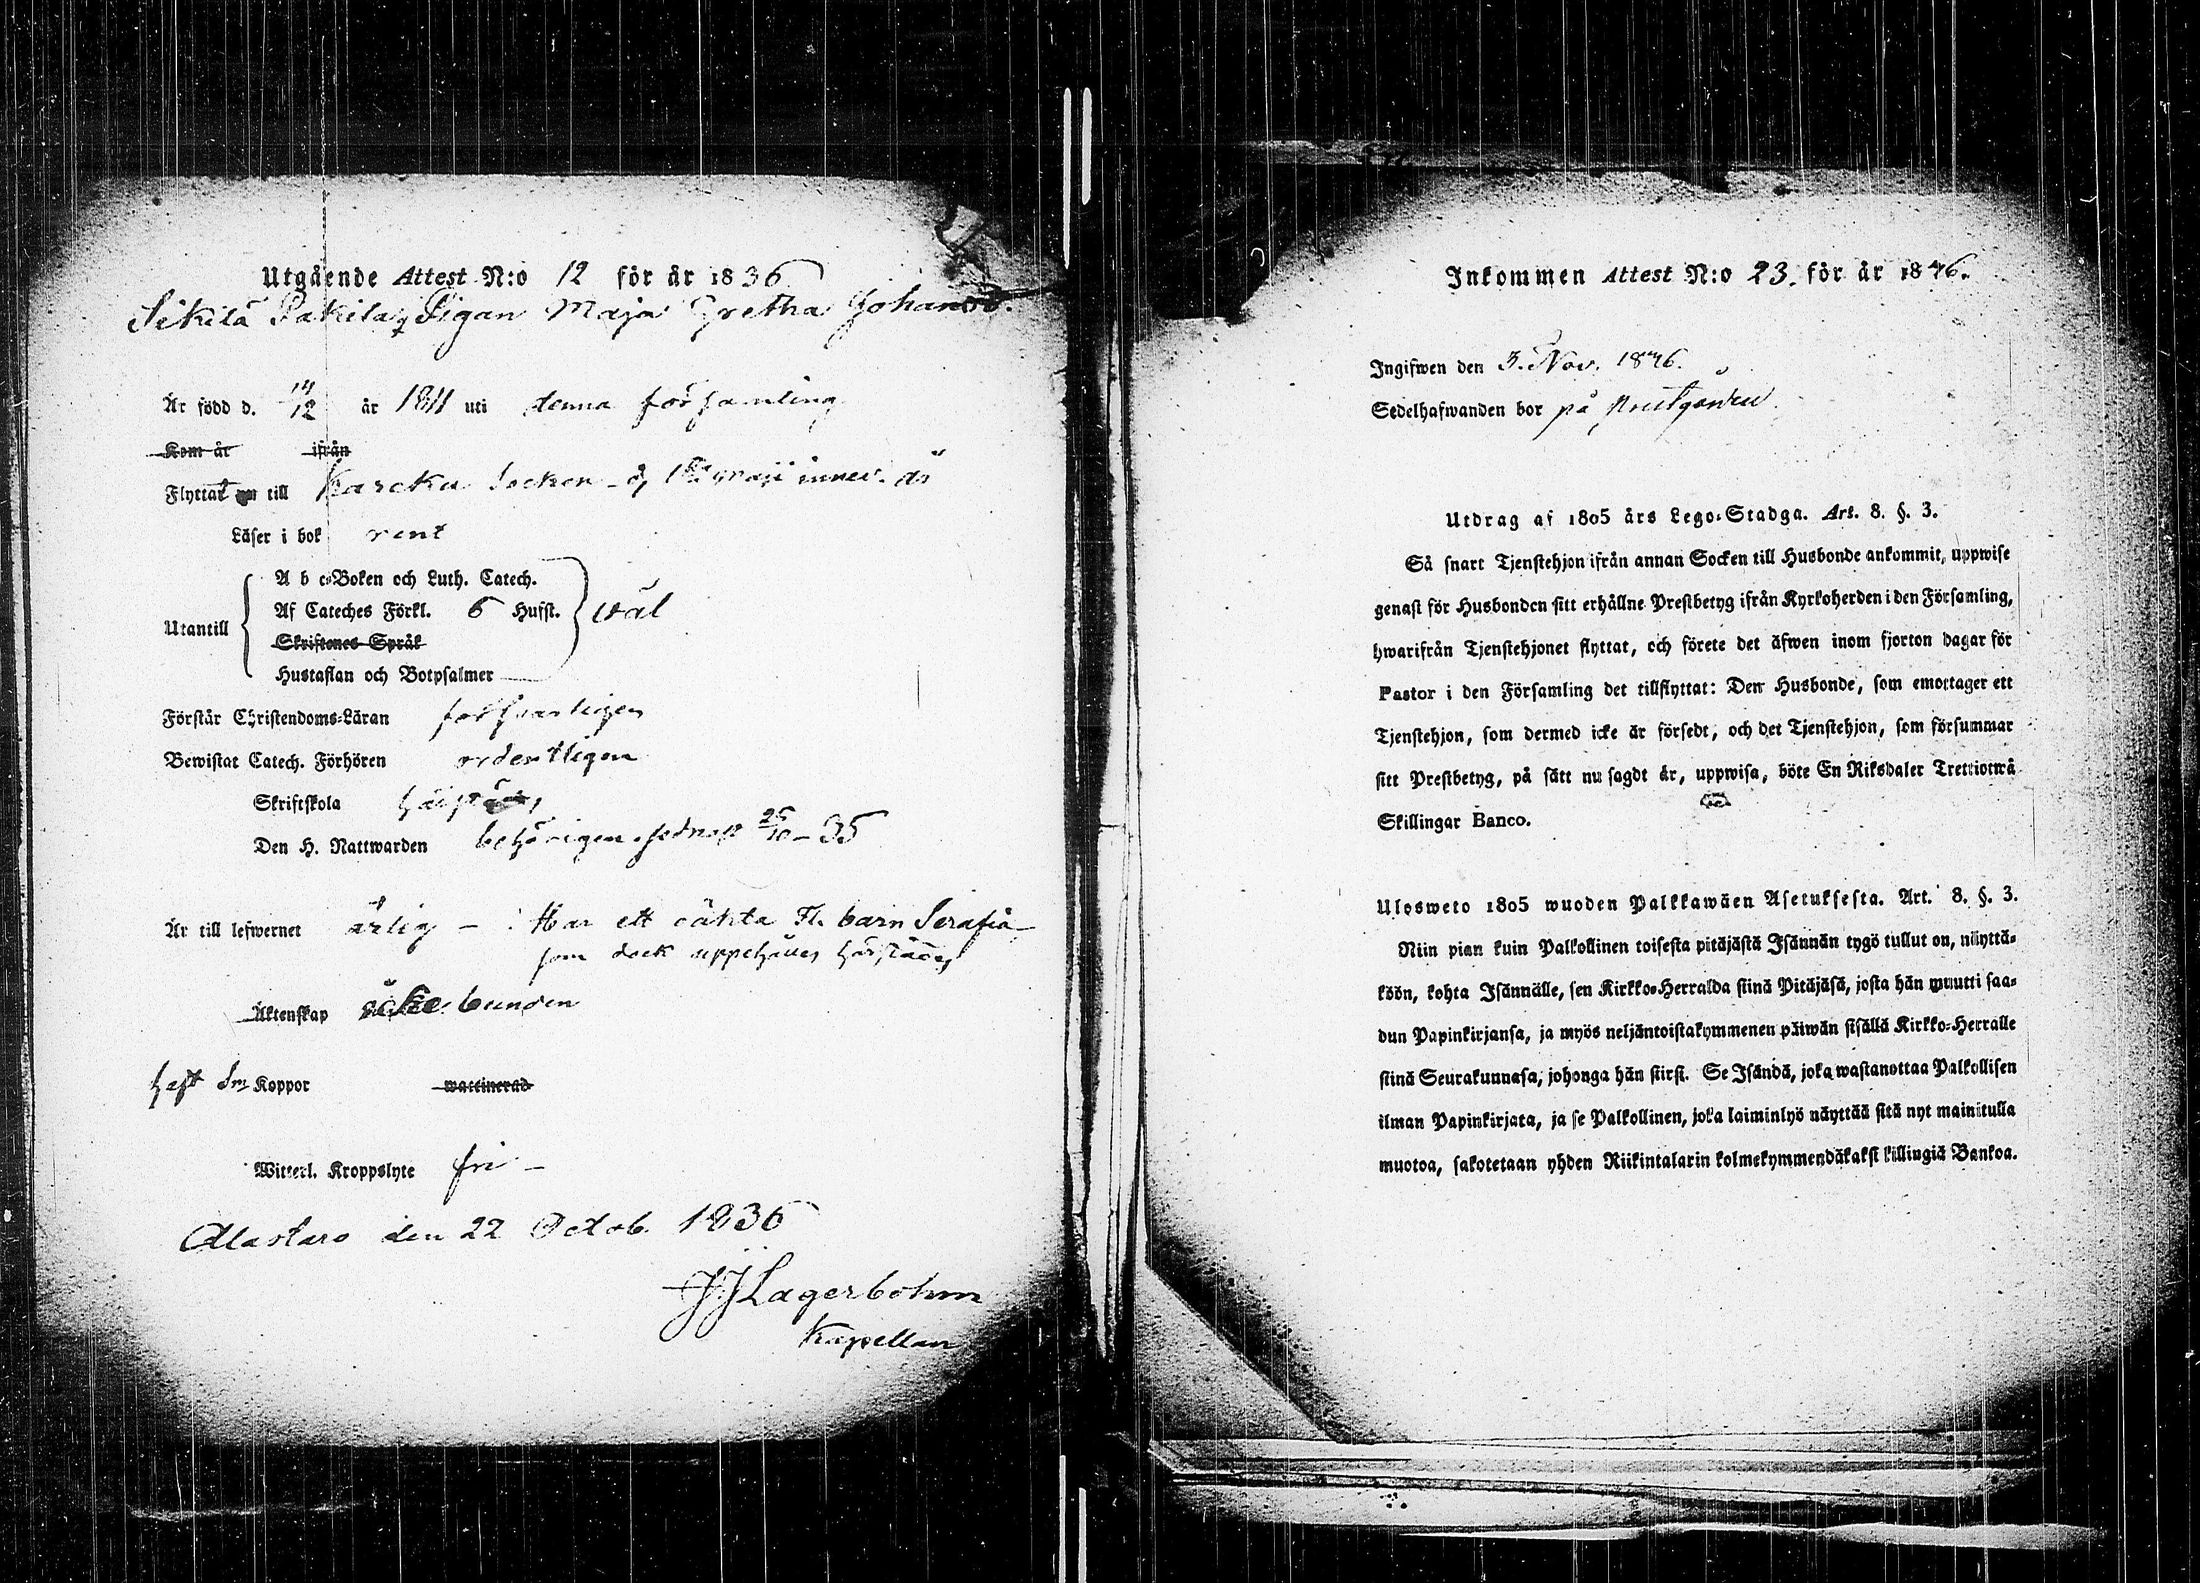 Utgående Attest N:o 12 för år 1836
Sikilä Pakila Pigan Maja Gretha Johansd.
Är född d. 14/12 år 1811 uti denna församling
Kom år ifrån
Flyttat nu till Karcku Socken
Läser i bok rent
A b c-Boken och Luth. Catech.
Af Cateches Förkl. 6 Hufst.
Utantill wäl
Skriftenes Språk
Hustaflan och Botpsalmer
Förstår Christendoms-Läran försvarligen
Bewistat Catech. Förhören ordentligen
Skriftskola härstädes
Den H. Nattwarden behörigen sednast 25/10 - 35
Är till lefwernet ärlig - Har ett oäkta Fl. barn Serafia
som dock uppehålles härstädes
Äktenskap icke bunden
haft Sm Koppor waccinerad
Witterl. Kroppslyte fri -
Alastaro den 22 Octob. 1836
JJLagerbohm
Kapellan
Inkommen Attest N:o 23. för år 1836.
Ingifwen den 3. Nov. 1836.
Sedelhafwanden bor på Prestgården
Utdrag af 1805 års Lego-Stadga. Art. 8. §. 3.
Så snart Tjenstehjon ifrån annan Socken till Husbonde ankommit, uppwise
genast för Husbonden sitt erhållne Prestbetyg ifrån Kyrkoherden i den Församling,
hwarifrån Tjenstehjonet flyttat, och förete det äfwen inom fjorton dagar för
Pastor i den Församling det tillflyttat: Den Husbonde, som emottager ett
Tjenstehjon, som dermed icke är försedt, och det Tjenstehjon, som försummar
sitt Prestbetyg, på sätt nu sagdt är, uppwisa, böte En Riksdaler Trettiotwå
Skillingar Banco.
Ulosweto 1805 wuoden Palkkawäen Asetuksesta. Art. 8. §. 3.
Niin pian kuin Palkollinen toisesta pitäjästä Isännän tygö tullut on, näyttä-
köön, kohta Isännälle, sen Kirkko-Herralda siinä Pitäjäsä, josta hän muutti saa-
dun Papinkirjansa, ja myös neljäntoistakymmenen päiwän sisällä Kirkko-Herralle
siinä Seurakunnasa, johonga hän siirsi. Se Isändä, joka wastanottaa Palkollisen
ilman Papinkirjata, ja se Palkollinen, joka laiminlyö näyttää sitä nyt mainitulla
muotoa, sakotetaan yhden Riikintalarin kolmekymmendäkaksi killingiä Bankoa.